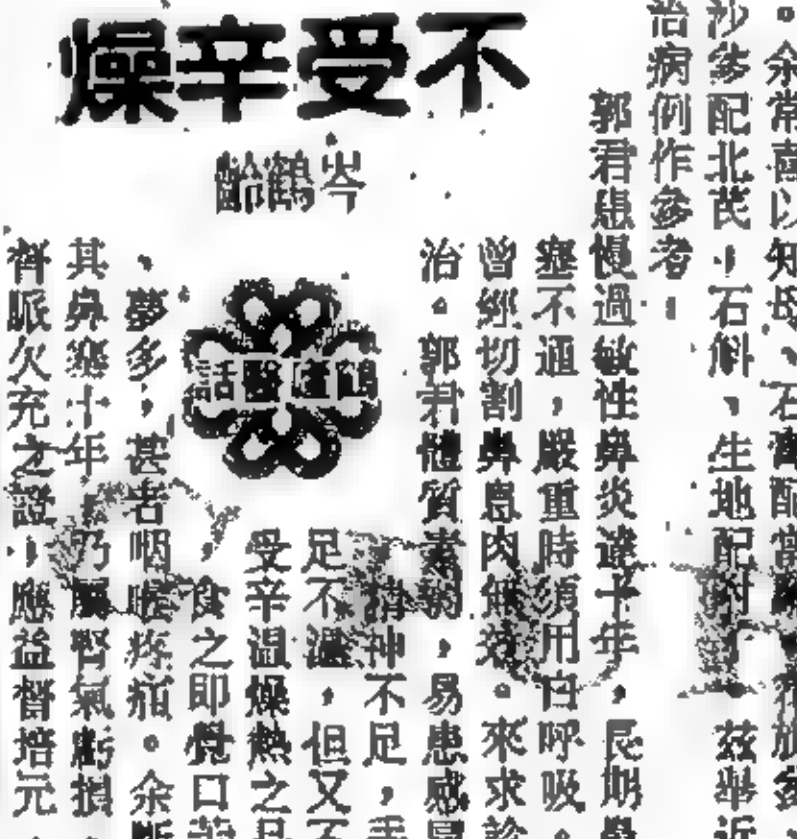 不受辛燥
岑鶴齡
鶴廬醫話
。余常喜以知母、石膏配當
沙參配北芪,石斛、生地配附 茲舉近
治病例作參考:
郭君患慢過敏性鼻炎達十年,長期鼻
塞不通,嚴重時須用口呼吸。
曾經切割鼻息肉無效。來求診
治。郭君體質素弱,易患感冒
精神不足,手
足不溫,但又不
受辛溫燥熱之品
,食之即覺口乾
、夢多,甚者咽喉疼痛。余斷
其鼻塞十年,乃屬腎氣虧損,
督脈欠充之證,應益督培元,